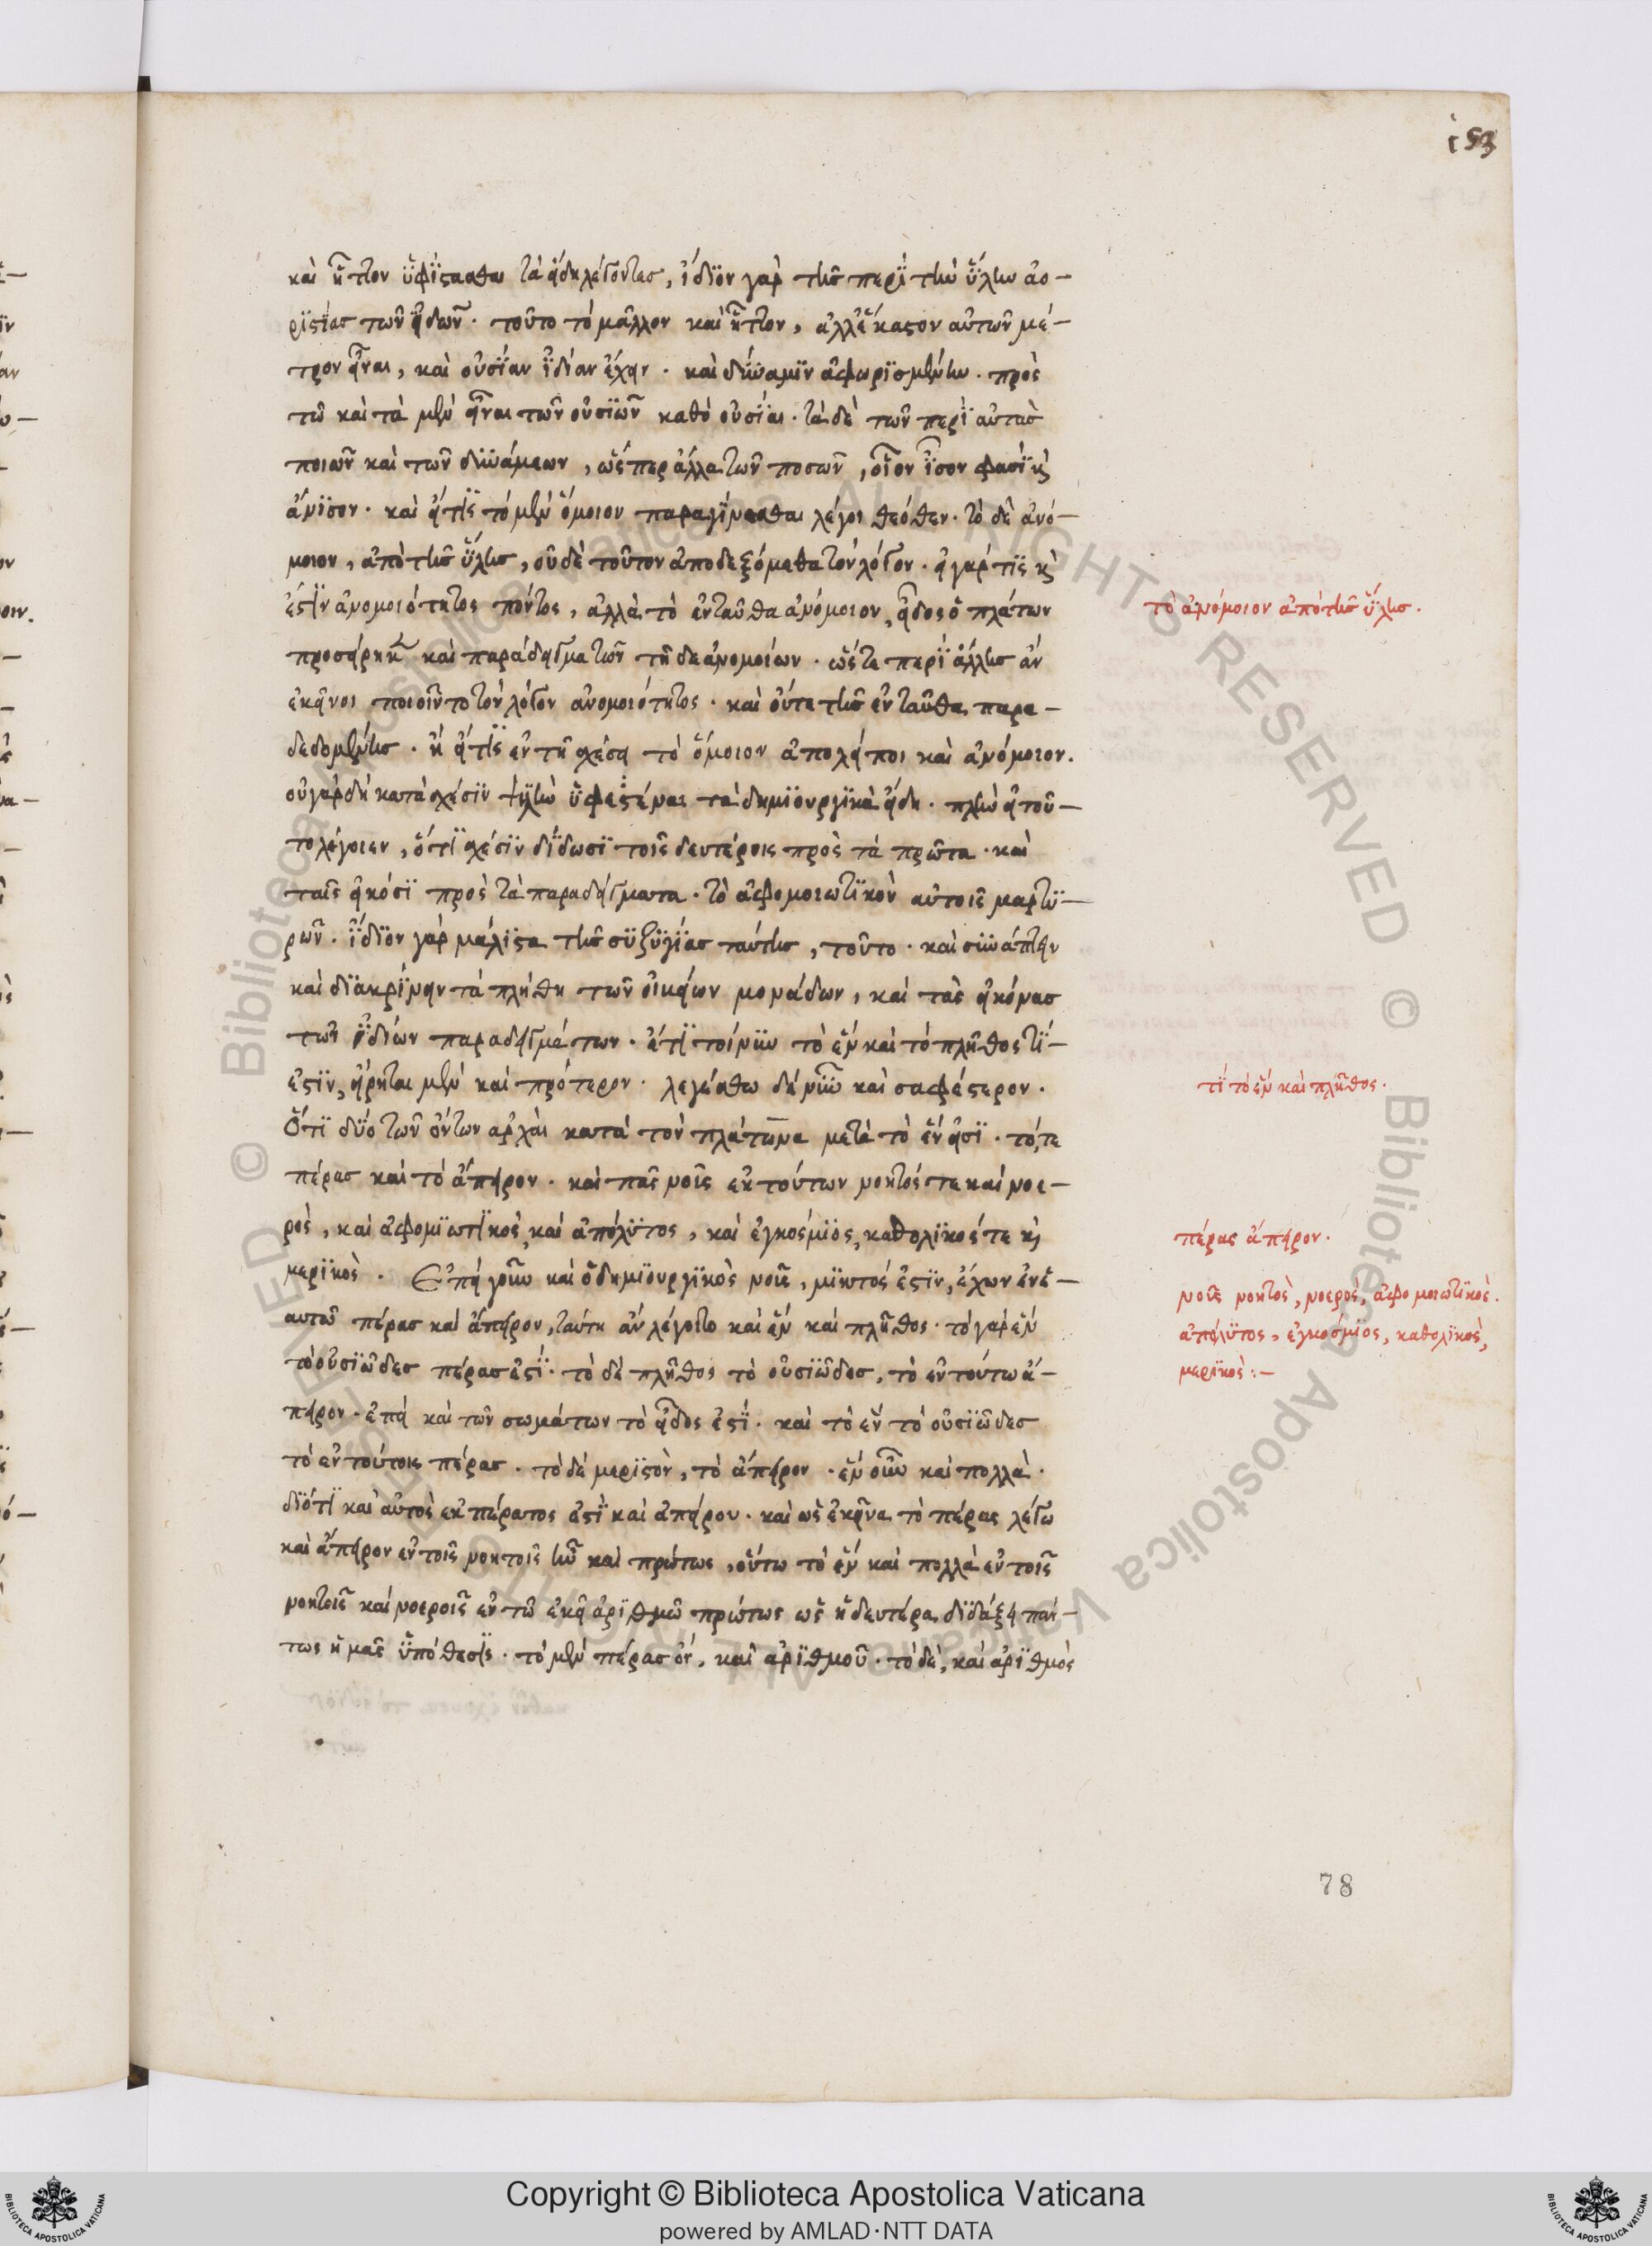 153
καὶ ἧττον ὑφίστασθαι τὰ εἴδη λέγοντας, ἴδιον γὰρ τῆς περὶ τὴν ὕλην ἀο-
ριστίας τῶν εἰδῶν· τοῦτο τὸ μᾶλλον καὶ ἧττον, ἀλλ' ἕκαστον αὐτῶν μέ-
τρον εἶναι, καὶ οὐσίαν ἰδίαν ἔχειν· καὶ δύναμιν ἀφωρισμένην· πρὸς
τῷ καὶ τὰ μὲν εἶναι τῶν οὐσιῶν καθὸ οὐσίαι· τὰ δὲ τῶν περὶ αὐτὰς
ποιῶν καὶ τῶν δυνάμεων, ὥσπερ ἄλλα τῶν ποσῶν, οἷον ἴσον φασὶ καὶ
ἄνισον· καὶ εἴ τις τὸ μὲν ὅμοιον παραγίνεσθαι λέγοι θεόθεν· τὸ δὲ ἀνό-
μοιον, ἀπὸ τῆς ὕλης, οὐδὲ τοῦτον ἀποδεξόμεθα τὸν λόγον· εἰ γάρ τις καὶ
ἔστιν ἀνομοιότητος πόντος, ἀλλὰ τὸ ἐνταῦθα ἀνόμοιον, εἶδος ὁ πλάτων
προσείρηκε καὶ παράδειγμα τῶν τῇδε ἀνομοίων· ὥστε περὶ ἄλλης ἂν
ἐκεῖνοι ποιοῖντο τὸν λόγον ἀνομοιότητος· καὶ οὔτε τῆς ἐνταῦθα παρα-
δεδομένης· ἢ εἴ τις ἐν τῇ σχέσει τὸ ὅμοιον ἀπολείποι καὶ ἀνόμοιον.
οὐ γὰρ δὴ κατὰ σχέσιν ψιλὴν ὑφεστάναι τὰ δημιουργικὰ εἴδη· πλὴν εἰ τοῦ-
το λέγοιεν, ὅτι σχέσιν δίδωσι τοῖς δευτέροις πρὸς τὰ πρῶτα· καὶ
ταῖς εἰκόσι πρὸς τὰ παραδείγματα· τὸ ἀφομοιωτικὸν αὐτοῖς μαρτυ-
ρῶν· ἴδιον γὰρ μάλιστα τῆς συζυγίας ταύτης, τοῦτο· καὶ συνάπτειν
καὶ διακρίνειν τὰ πλήθη τῶν οἰκείων μονάδων, καὶ τὰς εἰκόνας
τῶν ἰδίων παραδειγμάτων· ἔτι τοίνυν τὸ ἓν καὶ τὸ πλῆθος τί
ἐστιν, εἴρηται μὲν καὶ πρότερον· λεγέσθω δὲ νῦν καὶ σαφέστερον·
Ὅτι δύο τῶν ὄντων ἀρχαὶ κατὰ τὸν πλάτωνα μετὰ τὸ ἕν εἰσι· τό τε
πέρας καὶ τὸ ἄπειρον· καὶ πᾶς νοῦς ἐκ τούτων νοητός τε καὶ νοε-
ρὸς, καὶ ἀφομιωτικὸς, καὶ ἀπόλυτος, καὶ ἐγκόσμιος, καθολικός τε καὶ
μερικὸς. Ἐπεὶ γοῦν καὶ ὁ δημιουργικὸς νοῦς, μικτός ἐστιν, ἔχων ἐν ἑ-
αυτῷ πέρας καὶ ἄπειρον, ταύτῃ ἂν λέγοιτο καὶ ἓν καὶ πλῆθος· τὸ γὰρ ἓν
τὸ οὐσιῶδες πέρας ἐστί· τὸ δὲ πλῆθος τὸ οὐσιῶδες, τὸ ἐν τούτῳ ἄ-
πειρον· ἐπεὶ καὶ τῶν σωμάτων τὸ εἶδος ἐστί· καὶ τὸ ἓν τὸ οὐσιῶδες
τὸ ἐν τούτοις πέρας· τὸ δὲ μεριστὸν, τὸ ἄπειρον· ἓν οὖν καὶ πολλὰ·
διότι καὶ αὐτὸς ἐκ πέρατος ἐστὶ καὶ ἀπείρου· καὶ ὡς ἐκεῖνα τὸ πέρας λέγω
καὶ ἄπειρον ἐν τοῖς νοητοῖς ἦν καὶ πρώτως, οὕτω τὸ ἓν καὶ πολλὰ ἐν τοῖς
νοητοῖς καὶ νοεροῖς ἐν τῷ ἐκεῖ ἀριθμῷ πρώτως ὡς ἡ δευτέρα διδάξει πάν-
τως ἡμᾶς ὑπόθεσις· τὸ μὲν πέρας ὂν, καὶ ἀριθμοῦ· τὸ δὲ, καὶ ἀριθμὸς
τὸ ἀνόμοιον ἀπὸ τῆς ὕλης.
τί τὸ ἓν καὶ πλῆθος.
πέρας ἄπειρον.
νοῦς νοητὸς, νοερὸς, ἀφομοιωτικὸς.
ἀπόλυτος, ἐγκόσμιος, καθολικὸς,
μερικὸς:-
78
© Biblioteca Apostolica Vaticana ALL RIGHTS RESERVED
Copyright © Biblioteca Apostolica Vaticana
powered by AMLAD·NTT DATA
BIBLIOTECA APOSTOLICA VATICANA
BIBLIOTECA APOSTOLICA VATICANA